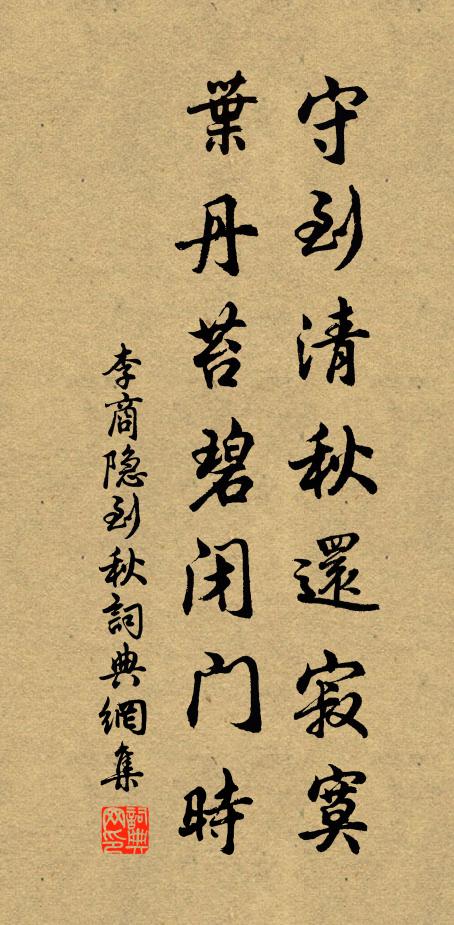 守到清秋還寂寞
葉丹苔碧闭门時
李商隐到秋詞典網集
詞典网印